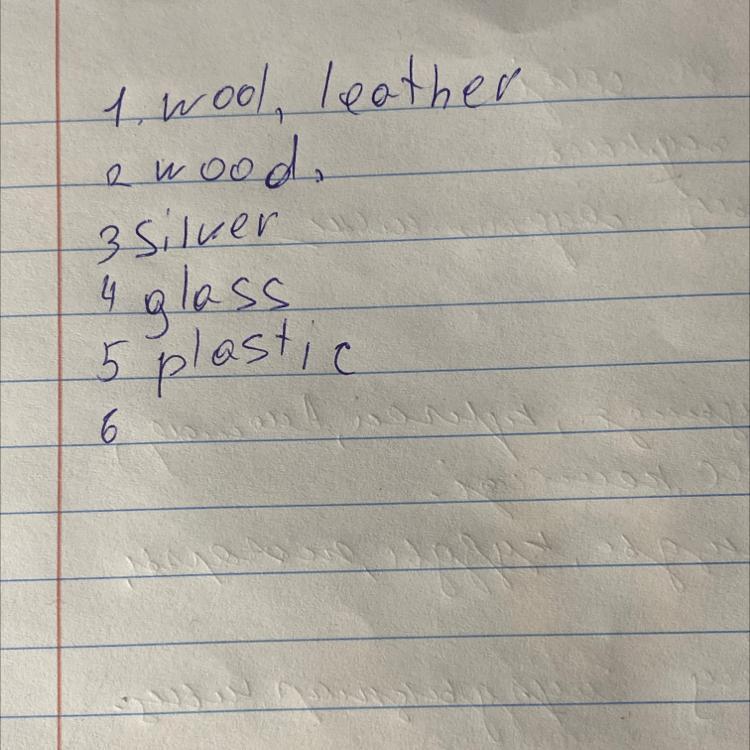 1. wool, leather
2 wood,
3 silver
4 glass
5 plastic
6